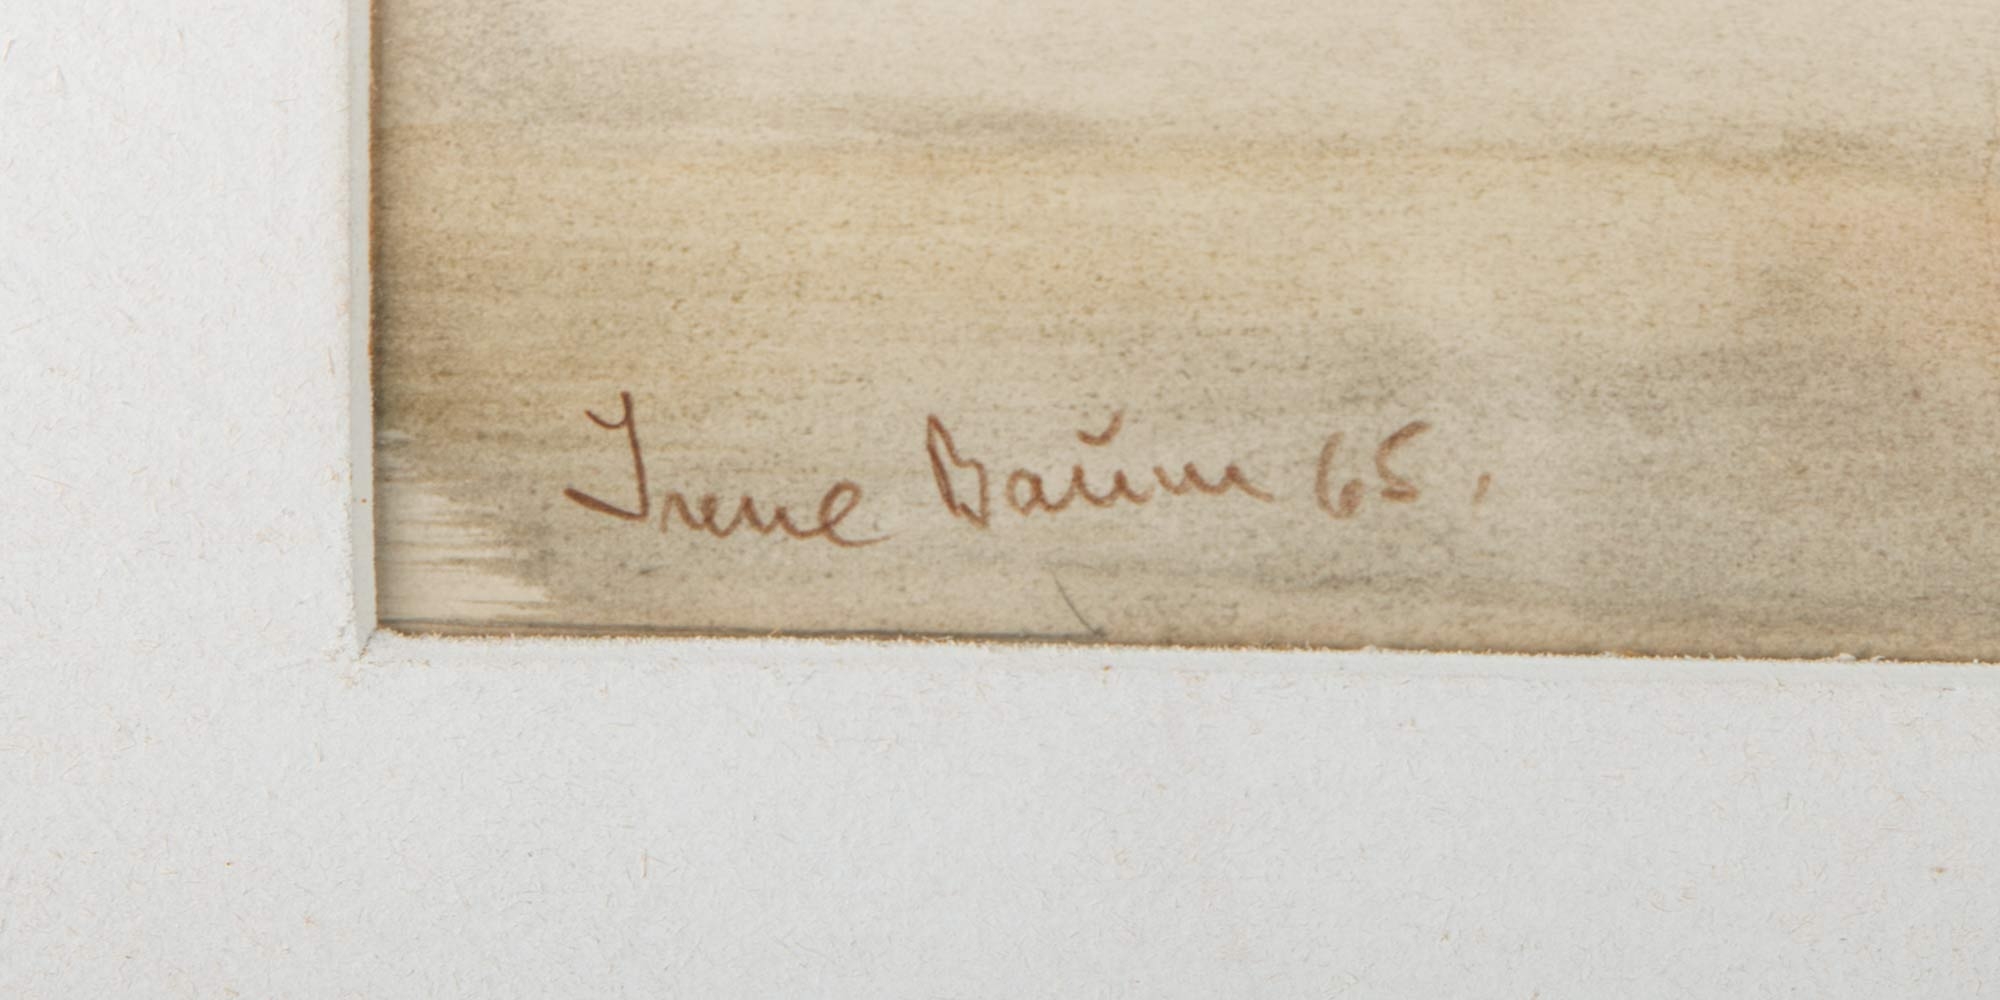 Irene Baum 65.